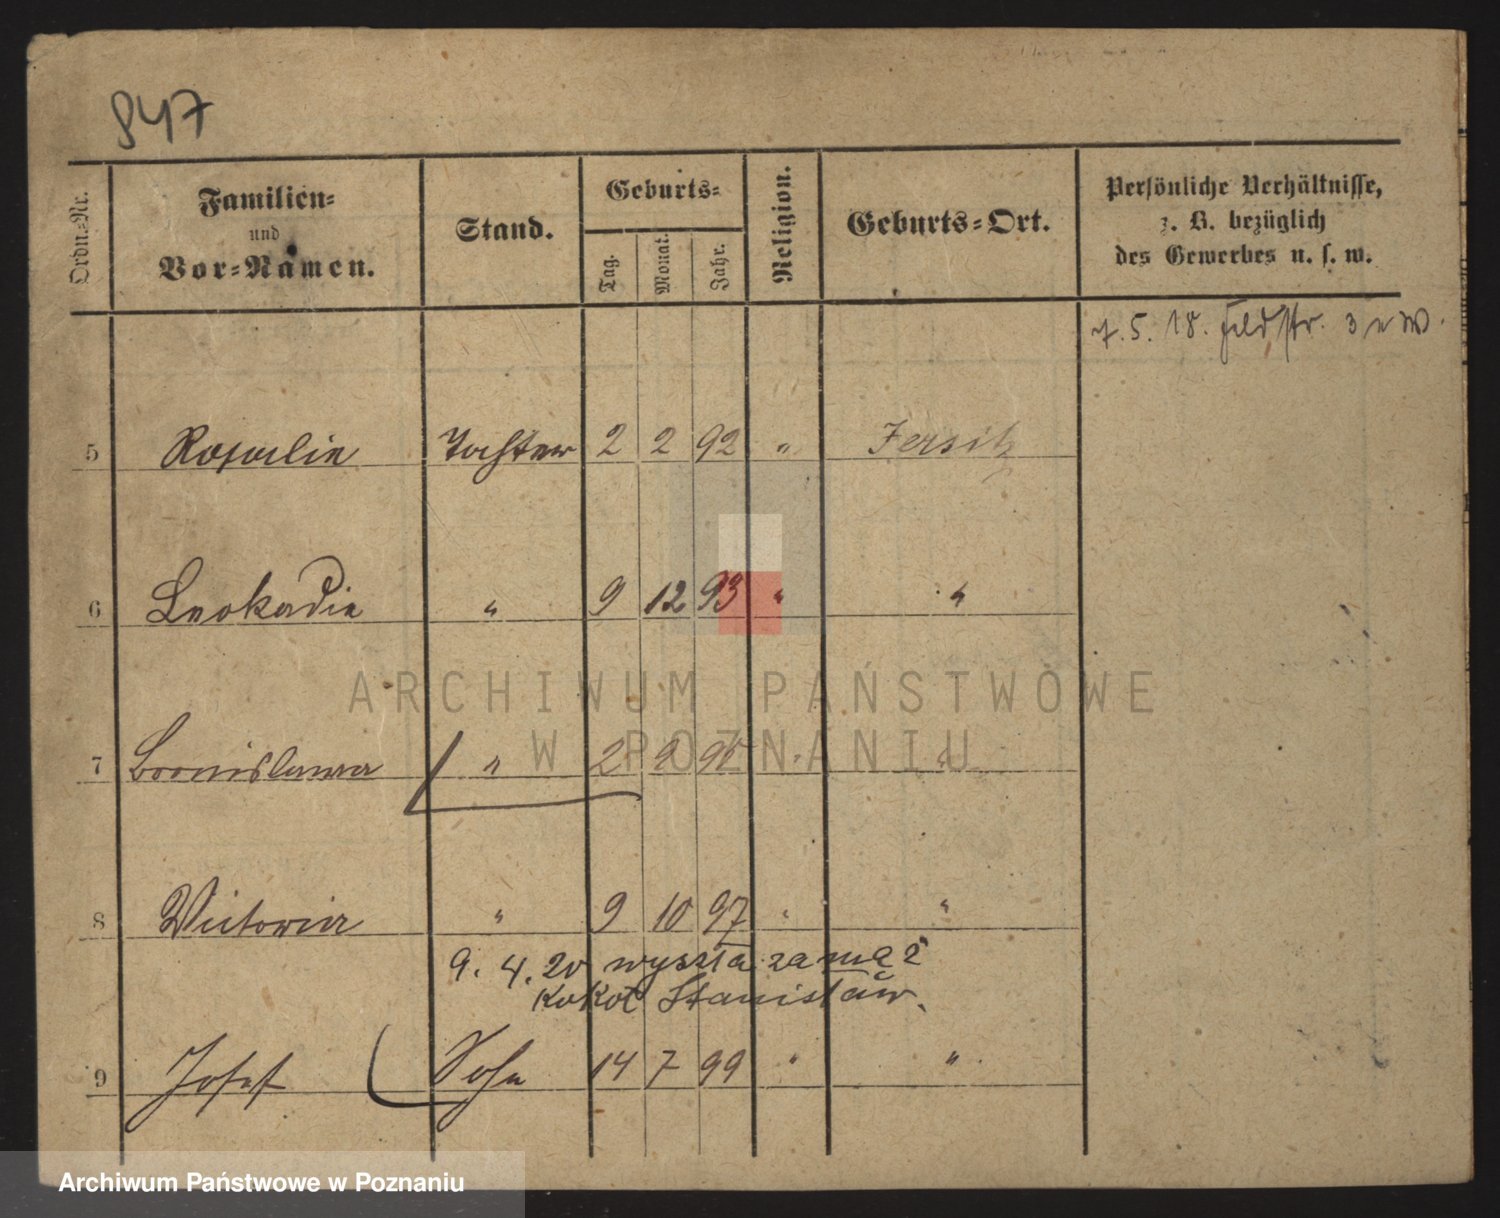 847
Ordn.-Nr.
Familien-
und
Vor-Namen.
Stand.
Geburts-
Tag.
Monat.
Jahr.
Religion.
Geburts-Ort.
Persönliche Verhältnisse,
z. B. bezüglich
des Gewerbes u. s. w.
5. 18. Feldstr. 3
5 Rosalie Tochter 2 2 92 " Jersitz
6 Leokadie " 9 12 93 " "
7 Bronislawa " 2 9 " "
8 Victoria " 9 10 97 " "
9. 4. 20 wyszła zamąż
Kokot Stanisław.
9 Josef Sohn 14 7 99 " "
ARCHIWUM PAŃSTWOWE
W POZNANIU
Archiwum Państwowe w Poznaniu